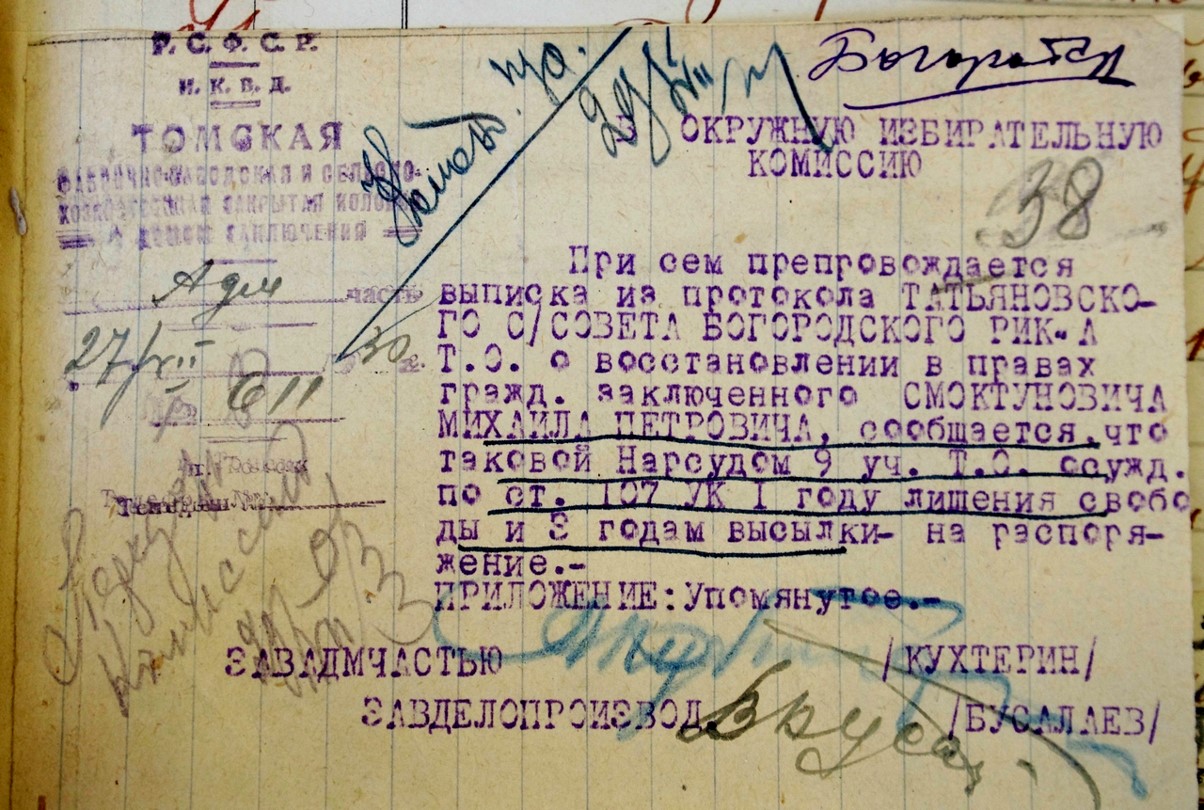 Р. С. Ф. С. Р.
Н. К. В. Д.
ТОМСКАЯ
ФАБРИЧНО-ЗАВОДСКАЯ И СЕЛЬСКО-
ХОЗЯЙСТВЕННАЯ ЗАКРЫТАЯ КОЛОНИЯ
ЗАКЛЮЧЕНИЯ
Адм часть
27/XII 30 г.
№ 611
В ОКРУЖНУЮ ИЗБИРАТЕЛЬНУЮ
КОМИССИЮ
38
При сем препровождается
выписка из протокола ТАТЬЯНОВСКО-
ГО С/СОВЕТА БОГОРОДСКОГО РИК-А
Т.О. о восстановлении в правах
гражд. заключенного СМОКТУНОВИЧА
МИХАИЛА ПЕТРОВИЧА, сообщается,что
таковой Нарсудом 9 уч. Т.О. осужд.
по ст. 107 УК I году лишения свобо
ды и 3 годам высылки- на распоря-
жение.-
ПРИЛОЖЕНИЕ:Упомянутое.-
ЗАВАДМЧАСТЬЮ /КУХТЕРИН/
ЗАВДЕЛОПРОИЗВОД. /БУСАЛАЕВ/